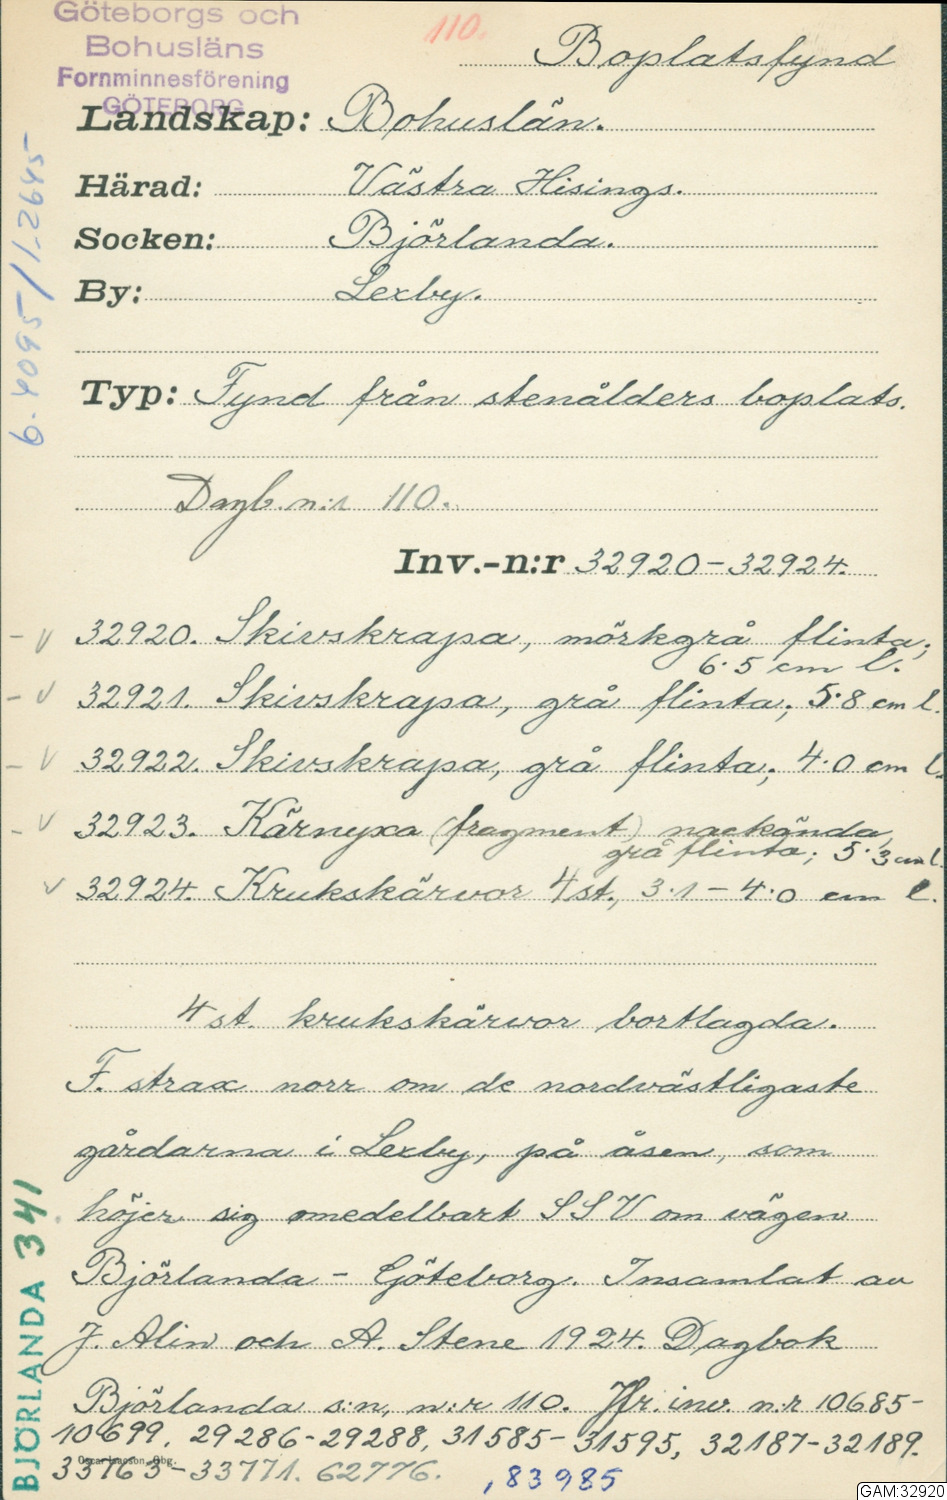 Göteborgs och
Bohusläns
Fornminnesförening
GÖTEBORG
110.
Boplatsfynd
Landskap: Bohuslän.
Härad: Västra Hisings.
Socken: Björlanda.
By: Lexby.
Typ: Fynd från stenålders boplats.
Dagb. n:r 110.
Inv.-n:r 32920-32924.
- v 32920. Skivskrapa, mörkgrå flinta;
6.5 cm l.
- v 32921. Skivskrapa, grå flinta; 5.8 cm l.
- v 32922. Skivskrapa, grå flinta; 4.0 cm l.
- v 32923. Kärnyxa (fragment) nackända,
grå flinta; 5.3 cm l.
v 32924. Krukskärvor 4 st., 3.1-4.0 cm l.
4 st. krukskärvor bortlagda.
F. strax norr om de nordvästligaste
gårdarna i Lexby, på åsen, som
höjer sig omedelbart SSV om vägen
Björlanda - Göteborg. Insamlat av
J. Alin och A. Stene 1924. Dagbok
Björlanda s:n, n:r 110. Jfr. inv. n:r 10685-
10699, 29286-29288, 31585-31595, 32187-32189.
33763-33771. 62776. , 83985
Oscar Isacson, Gbg.
6.4095/1-2645
BJÖRLANDA 341
GAM:32920